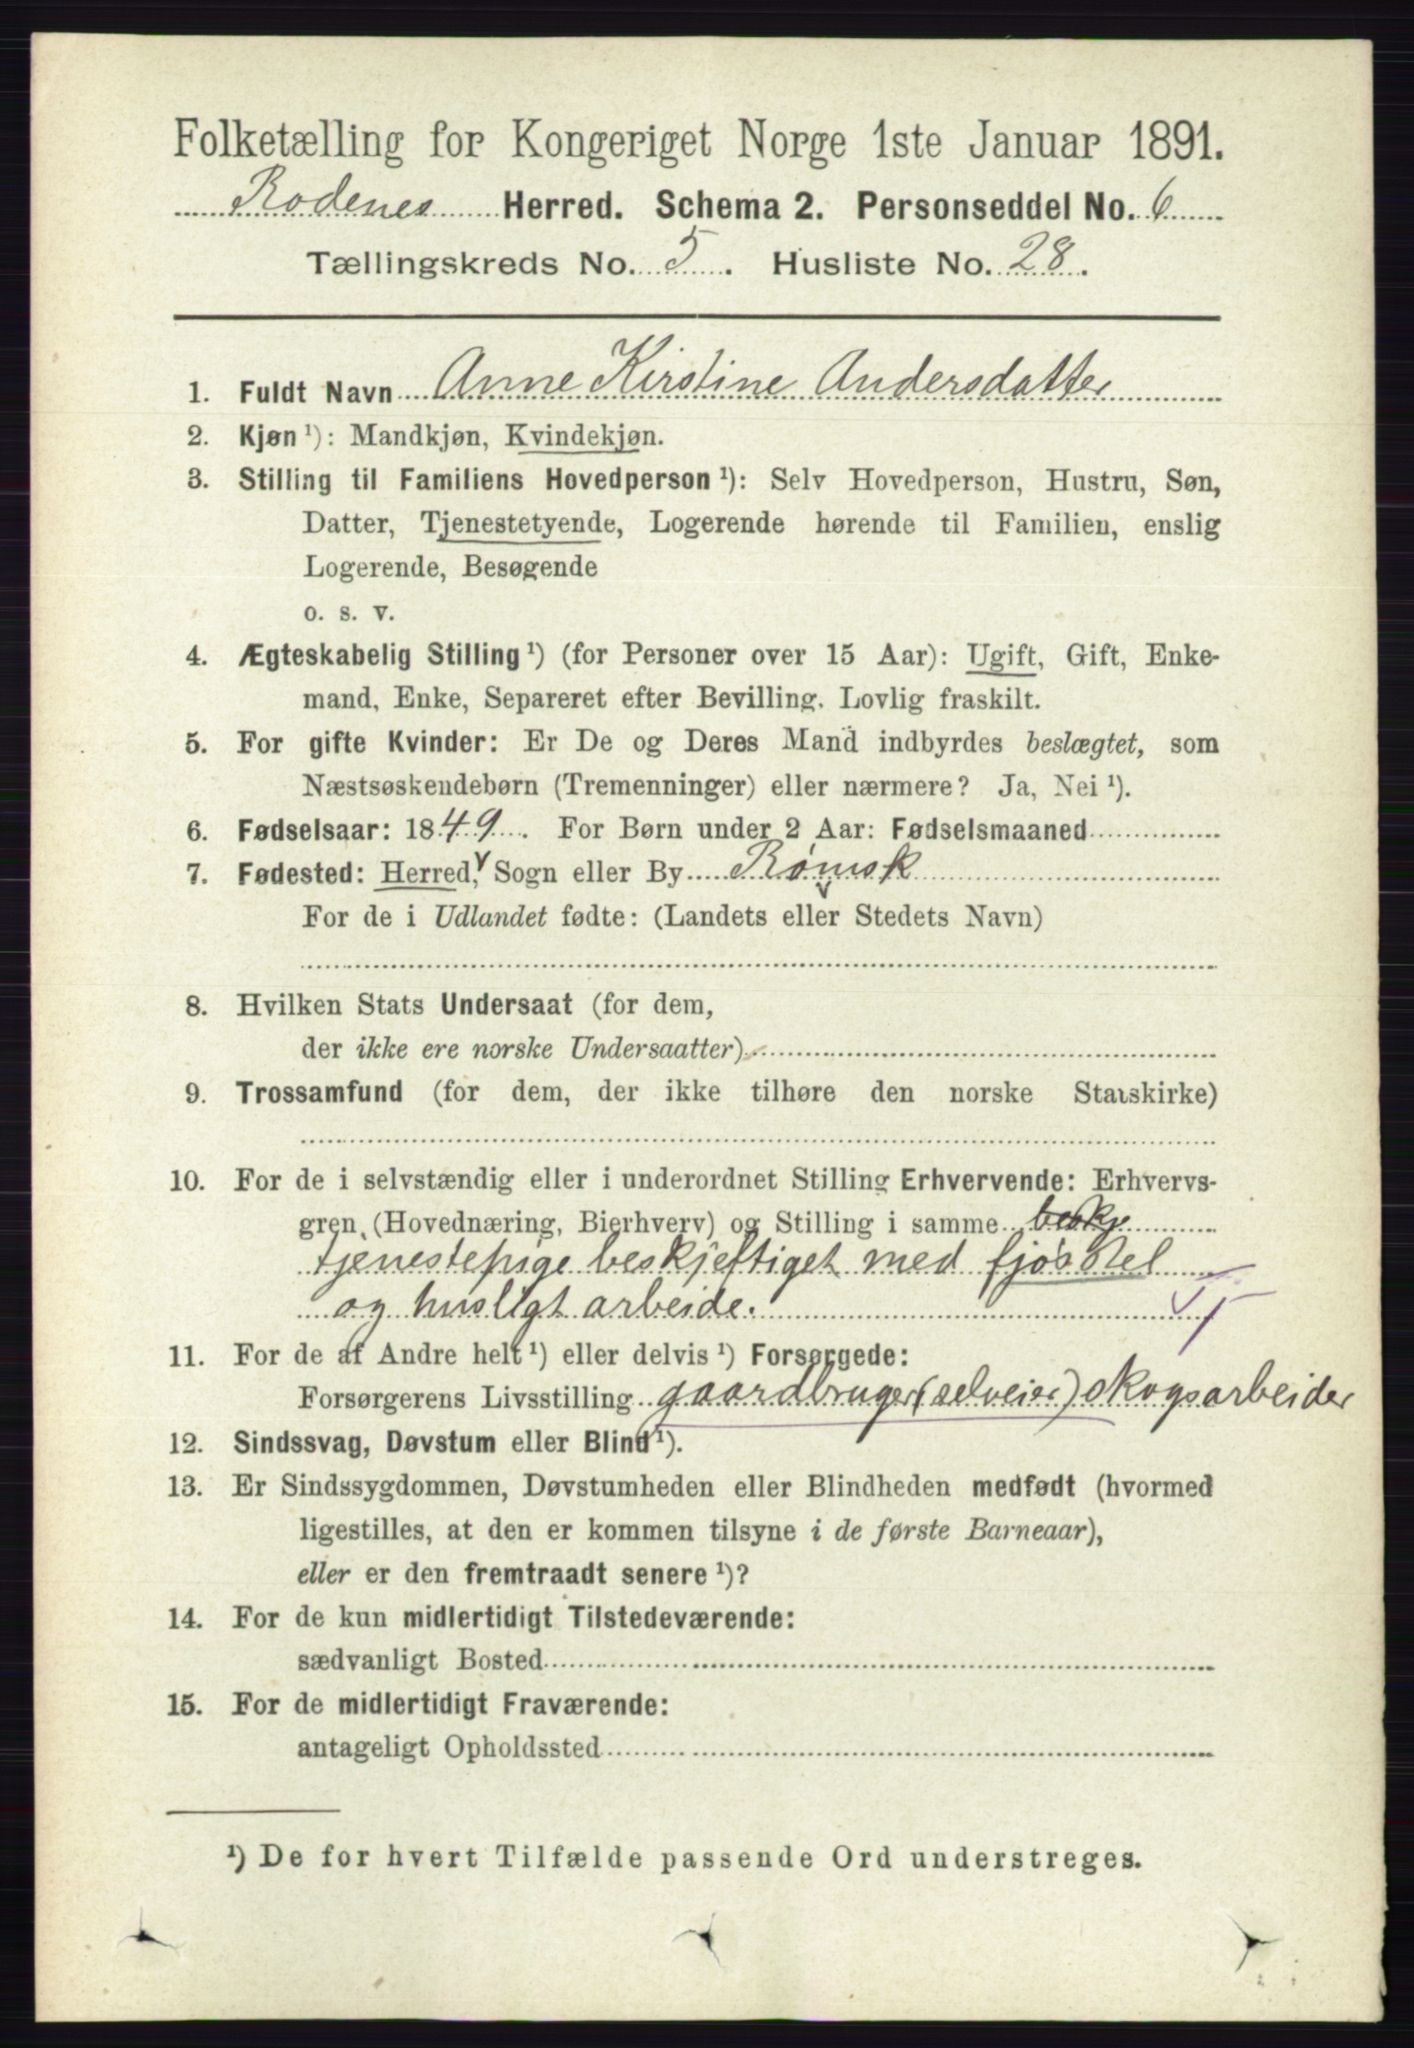 Folketælling for Kongeriget Norge 1ste Januar 1891.
Rodenes Herred. Schema 2. Personseddel No. 6
Tællingskreds No. 5. Husliste No. 28.
1. Fuldt Navn Anne Kirstine Andersdatter
2. Kjøn ¹): Mandkjøn, Kvindekjøn.
3. Stilling til Familiens Hovedperson ¹): Selv Hovedperson, Hustru, Søn,
Datter, Tjenestetyende, Logerende hørende til Familien, enslig
Logerende, Besøgende
o. s. v.
4. Ægteskabelig Stilling ¹) (for Personer over 15 Aar): Ugift, Gift, Enke-
mand, Enke, Separeret efter Bevilling. Lovlig fraskilt.
5. For gifte Kvinder: Er De og Deres Mand indbyrdes beslægtet, som
Næstsøskendebørn (Tremenninger) eller nærmere? Ja, Nei ¹).
6. Fødselsaar: 1849. For Børn under 2 Aar: Fødselsmaaned
7. Fødested: Herred, Sogn eller By Rømsk
For de i Udlandet fødte: (Landets eller Stedets Navn)
8. Hvilken Stats Undersaat (for dem,
der ikke ere norske Undersaatter)
9. Trossamfund (for dem, der ikke tilhøre den norske Statskirke)
10. For de i selvstændig eller i underordnet Stilling Erhvervende: Erhvervs-
gren (Hovednæring, Bierhverv) og Stilling i samme beskje
tjenestepige beskjeftiget med fjøsstel
og husligt arbeide.
11. For de af Andre helt ¹) eller delvis ¹) Forsørgede:
Forsørgerens Livsstilling gaardbruger (selveier) skogsarbeider
12. Sindssvag, Døvstum eller Blind ¹).
13. Er Sindssygdommen, Døvstumheden eller Blindheden medfødt (hvormed
ligestilles, at den er kommen tilsyne i de første Barneaar),
eller er den fremtraadt senere ¹)?
14. For de kun midlertidigt Tilstedeværende:
sædvanligt Bosted
15. For de midlertidigt Fraværende:
antageligt Opholdssted
¹) De for hvert Tilfælde passende Ord understreges.